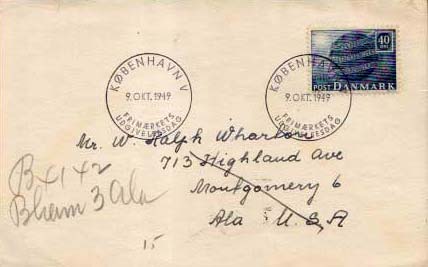 40
ØRE
POST DANMARK
KØBENHAVN V
9. OKT. 1949
FRIMÆRKETS
UDGIVELSESDAG
KØBENHAVN V
9. OKT. 1949
FRIMÆRKETS
UDGIVELSESDAG
Mr. W. Ralph Wharton
713 Highland Ave
Montgomery 6
Ala U.S.A
Box 142
Bham 3 Ala
15